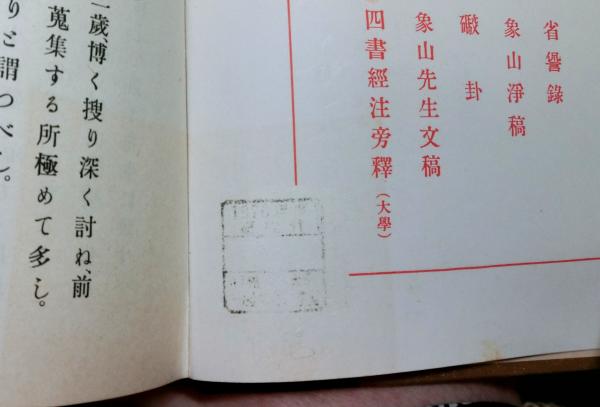 省諐錄
象山淨稿
礮卦
象山先生文稿
四書經注旁釋(大學)
一歲、博く搜り深く討ね、前
蒐集する所極めて多し。
りと謂つべし。